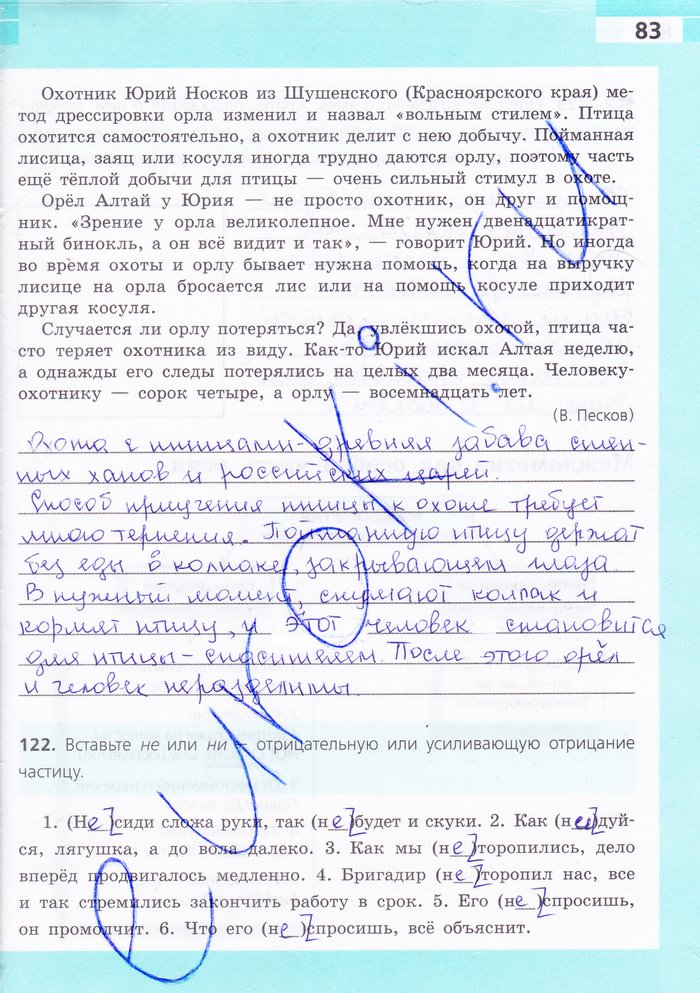 83
Охотник Юрий Носков из Шушенского (Красноярского края) ме-
тод дрессировки орла изменил и назвал «вольным стилем». Птица
охотится самостоятельно, а охотник делит с нею добычу. Пойманная
лисица, заяц или косуля иногда трудно даются орлу, поэтому часть
ещё тёплой добычи для птицы — очень сильный стимул в охоте.
Орёл Алтай у Юрия — не просто охотник, он друг и помощ-
ник. «Зрение у орла великолепное. Мне нужен двенадцатикрат-
ный бинокль, а он всё видит и так», — говорит Юрий. Но иногда
во время охоты и орлу бывает нужна помощь, когда на выручку
лисице на орла бросается лис или на помощь косуле приходит
другая косуля.
Случается ли орлу потеряться? Да, увлёкшись охотой, птица ча-
сто теряет охотника из виду. Как-то Юрий искал Алтая неделю,
а однажды его следы потерялись на целых два месяца. Человеку-
охотнику — сорок четыре, а орлу — восемнадцать лет.
(В. Песков)
Охота с птицами-древняя забава степ-
ных ханов и российских царей.
Способ приучения птицы к охоте требует
много терпения. Пойманную птицу держат
без еды в колпаке, закрывающем глаза.
В нужный момент, снимают колпак и
кормят птицу, и этот человек становится
для птицы-спасителем. После этого орёл
и человек неразделимы.
122. Вставьте не или ни – отрицательную или усиливающую отрицание
частицу.
1. (Не)сиди сложа руки, так (не)будет и скуки. 2. Как (ни)дуй-
ся, лягушка, а до вола далеко. 3. Как мы (не)торопились, дело
вперёд продвигалось медленно. 4. Бригадир (не)торопил нас, все
и так стремились закончить работу в срок. 5. Его (не)спросишь,
он промолчит. 6. Что его (не)спросишь, всё объяснит.